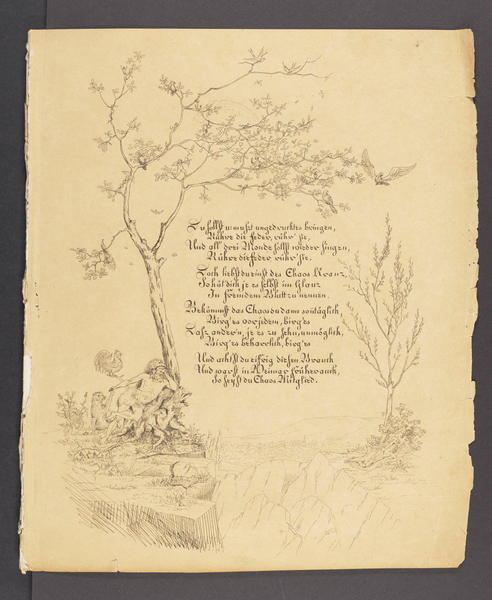 Du sollst u mußt ungedrucktes bringen,
Rühre die Feder, rühr' sie.
Und all drei Monde sollst wieder singen,
Rühre die Feder rühr' sie.
Doch liebst du einst des Chaos Kranz
So hüt dich je es selbst im Glanz
In fremdem Blatt zu nennen.
Bekömmst das Chaos du dann sonntäglich,
Birg's vor jedem, birg's
Lass andere'n, je es zu sehn, unmöglich,
Birg's beharrlich, birg's
Und achtst du eifrig diesen Brauch
Und sogst in Weimar früher auch,
So seyst du Chaos Mitglied.